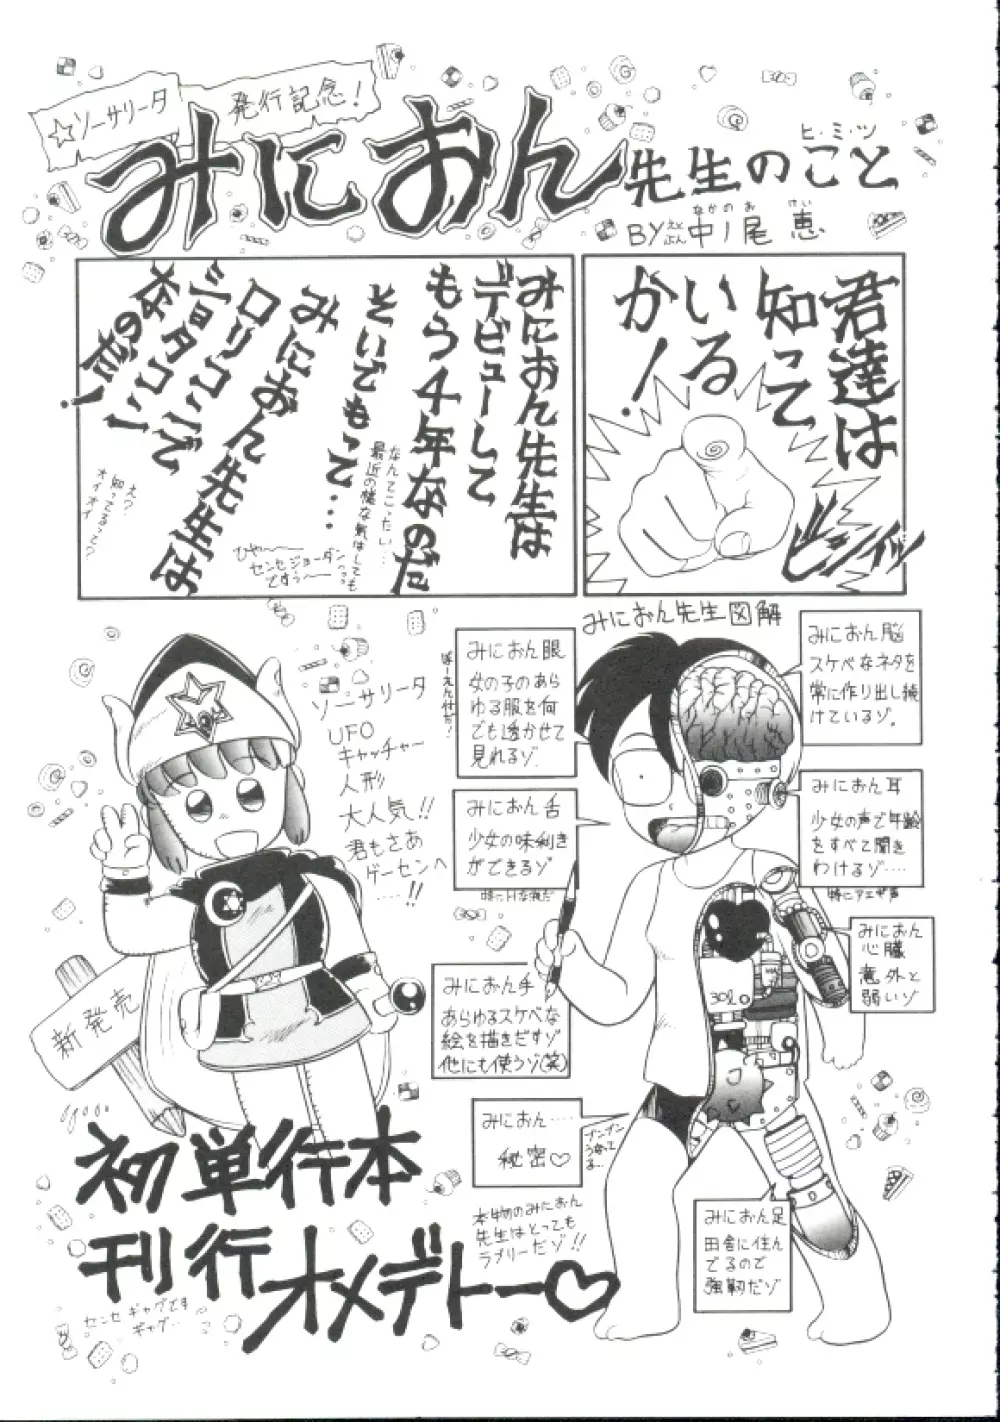 ☆ソーサリータ
発行記念!
みにおん先生のこと
ヒ・ミ・ツ
BY えとぶん 中ノ尾恵
なかのお けい
君達は
知って
いる
か!
ビシィッ
みにおん先生は
デビューして
もう4年なのだ
そいでもって…
みにおん先生は
ロリコンで
ショタコン
なのだ!
なんてこったい…
ひゃ〜〜
センセジョーダン
ですぅ〜〜
えっ?
知ってるって?
オイオイ
みにおん先生図解
みにおん脳
スケベなネタを
常に作り出し続
けているゾ。
みにおん眼
女の子のあら
ゆる服を何
でも透かせて
見れるゾ
みにおん耳
少女の声で年齢
をすべて聞き
わけるゾ……
特にアエギ声
みにおん舌
少女の味利き
ができるゾ
みにおん
心臓
意外と
弱いゾ
みにおん手
あらゆるスケベな
絵を描きだすゾ
他にも使うゾ(笑)
301
みにおん……
秘密♡
みにおん足
田舎に住ん
でるので
強靭だゾ
本物のみにおん
先生はとっても
ラブリーだゾ!!
ソーサリータ
UFO
キャッチャー
人形
大人気!!
君もさあ
ゲーセンへ
……!!
新発売
初単行本
刊行オメデトー♡
センセ ギャグです
ギャグ…